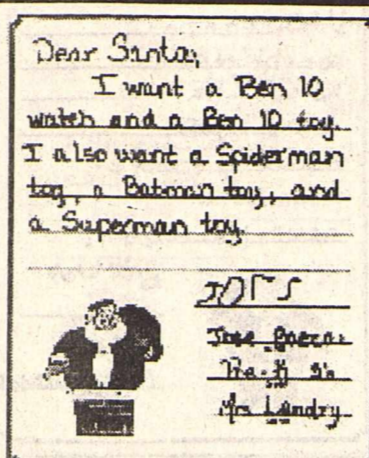 Dear Santa,
I want a Ben 10
watch and a Ben 10 toy.
I also want a Spiderman
toy, a Batman toy, and
a Superman toy.
Mrs Landry